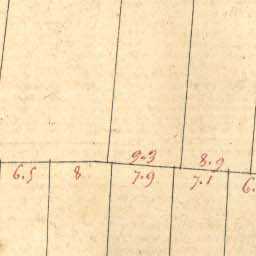 9.9 8.9
6.5 8 7.9 7.1 6.